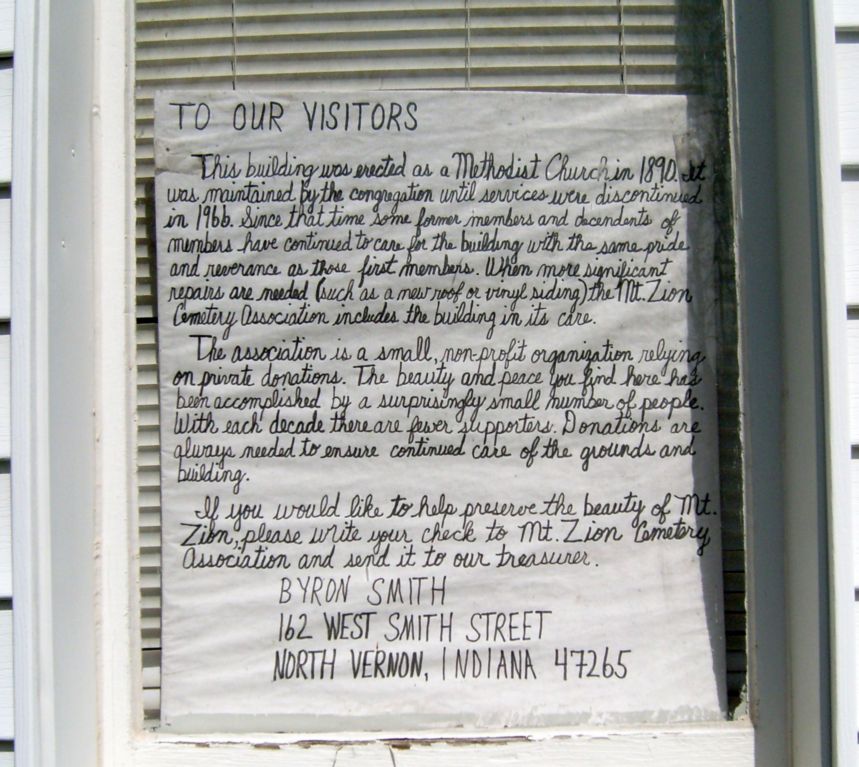 TO OUR VISITORS
This building was erected as a Methodist Church in 1890. It
was maintained by the congregation until services were discontinued
in 1966. Since that time some former members and decendents of
members have continued to care for the building with the same pride
and reverance as those first members. When more significant
repairs are needed (such as a new roof or vinyl siding) the Mt. Zion
Cemetery Association includes the building in its care.
The association is a small, non-profit organization relying
on private donations. The beauty and peace you find here has
been accomplished by a surprisingly small number of people.
With each decade there are fewer supporters. Donations are
always needed to ensure continued care of the grounds and
building.
If you would like to help preserve the beauty of Mt.
Zion, please write your check to Mt. Zion Cemetery
Association and send it to our treasurer.
BYRON SMITH
162 WEST SMITH STREET
NORTH VERNON, INDIANA 47265